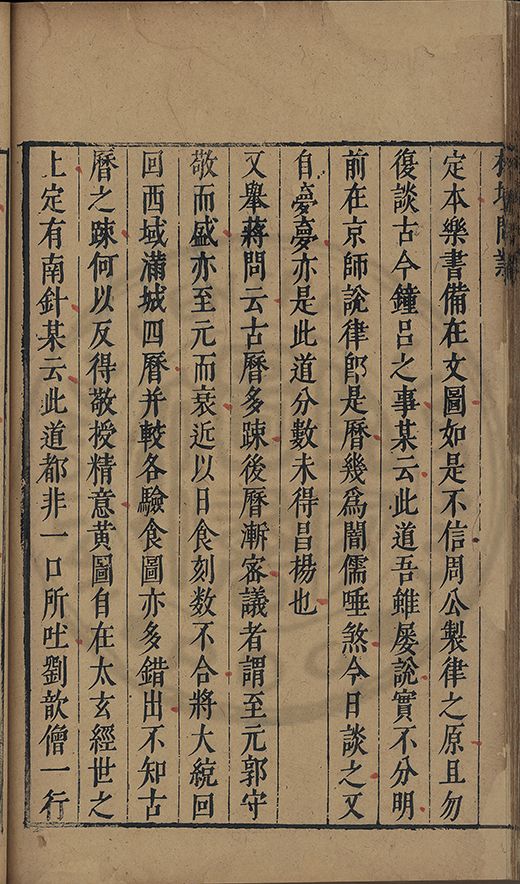 定本樂書備在文圖如是不信周公製律之原且勿
復談古今鐘呂之事某云此道吾雖屡說實不分明
前在京師說律卽是曆幾爲闇儒唾煞今日談之又
自夣夣亦是此道分數未得昌揚也
又舉蔣問云古曆多踈後曆漸宻議者謂至元郭守
敬而盛亦至元而衰近以日食刻数不合將大綂回
回西域滿城四曆并較各驗食圖亦多錯出不知古
曆之踈何以反得敬授精意黃圖自在太玄經世之
上定有南針某云此道都非一口所吐劉歆僧一行